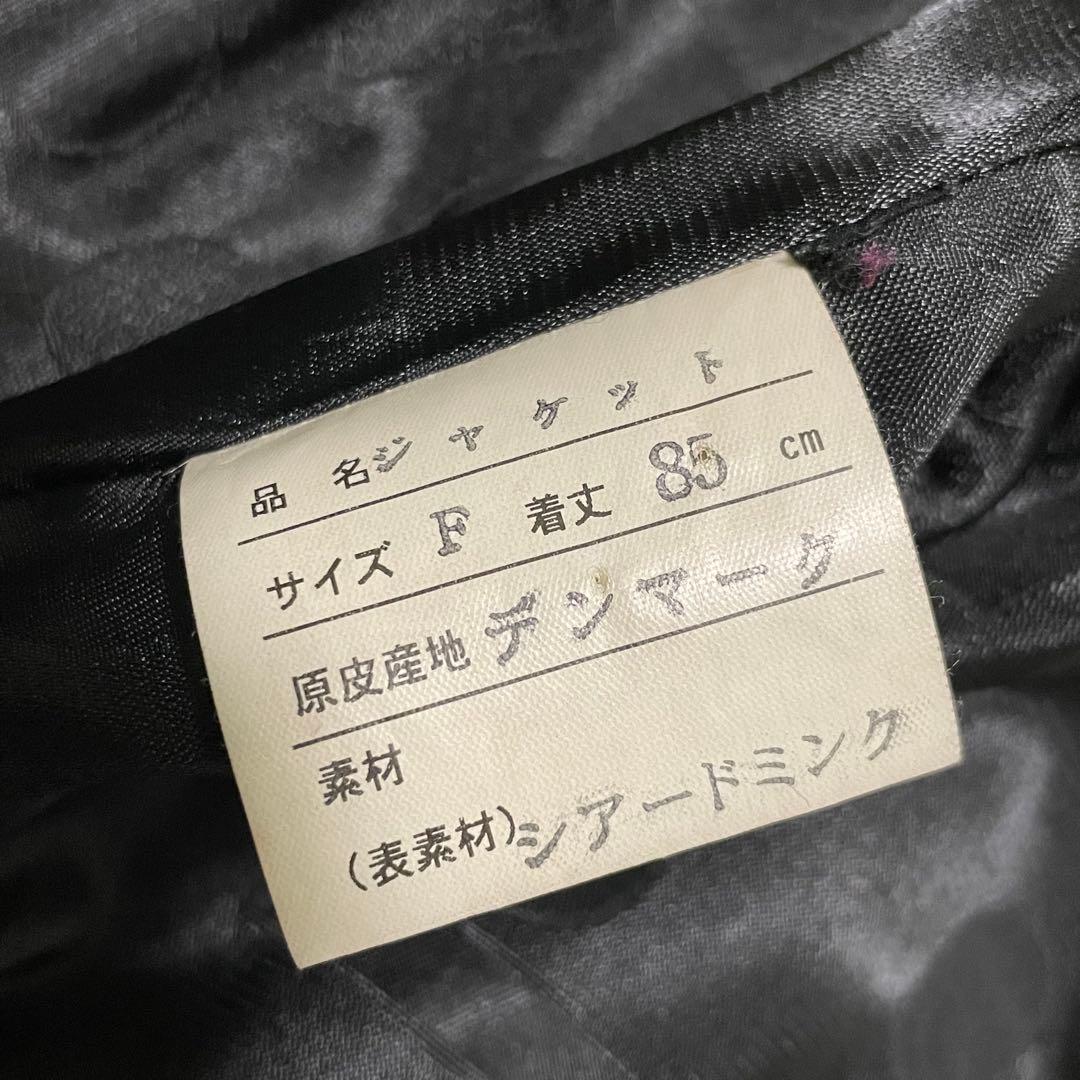 品 名ジャケット
サイズ F 着丈 85 cm
原皮産地 デンマーク
素材
(表素材)シアードミンク